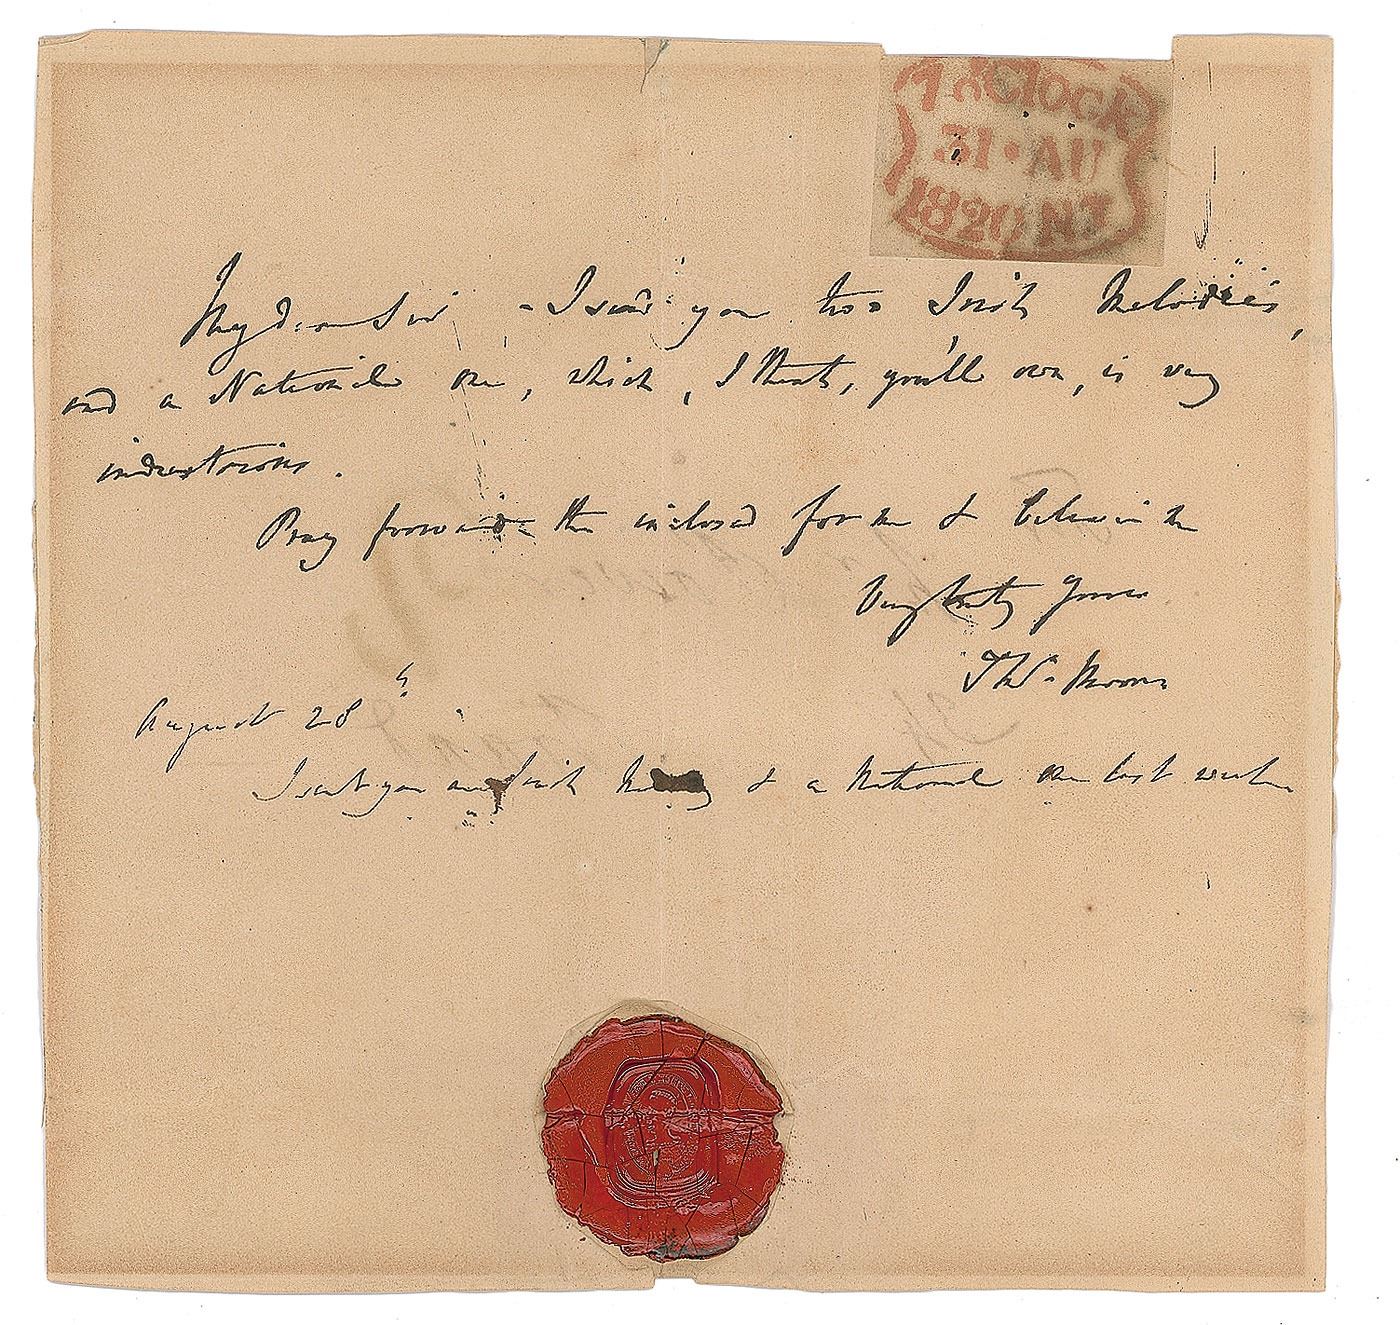 7 o'Clock
31 • AU
1820 NT
My dear Sir - I send you two Irish Melodies,
and a National one, which, I think, you'll own, is very
industrious.
Pray forward the inclosed for me & believe me
Very truly Yours
Thos. Moore
August 28
I sent you an Irish & a National one last week